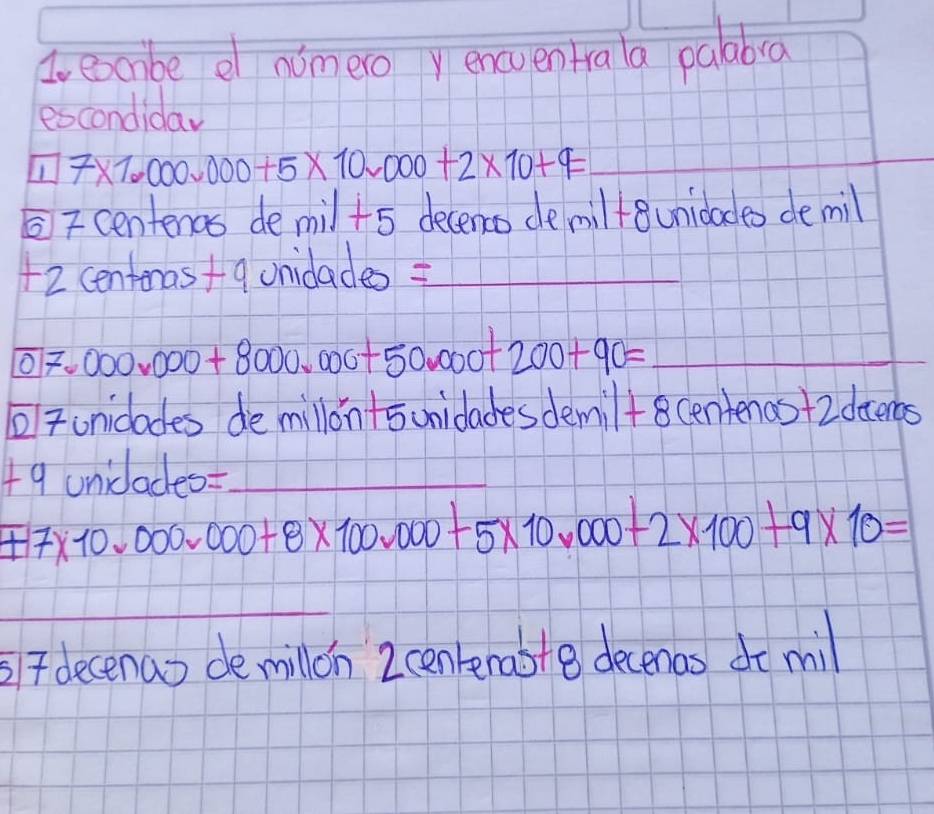 1. escribe el número y encuentra la palabra
escondida.
1 7x1.000.000+5x10.000+2x10+9=
6 7 centenas de mil +5 decenas de mil+8 unidades de mil
+2 centenas+9 unidades =
0 7.000.000+8000.000+50.000+200+90=
D 7 unidades de millón+5 unidades demil+8 centenas+2 decenas
+9 unidades=
7x10.000.000+8x100.000+5x10.000+2x100+9x10=
7 decenas de millón 2 centenas+8 decenas de mil